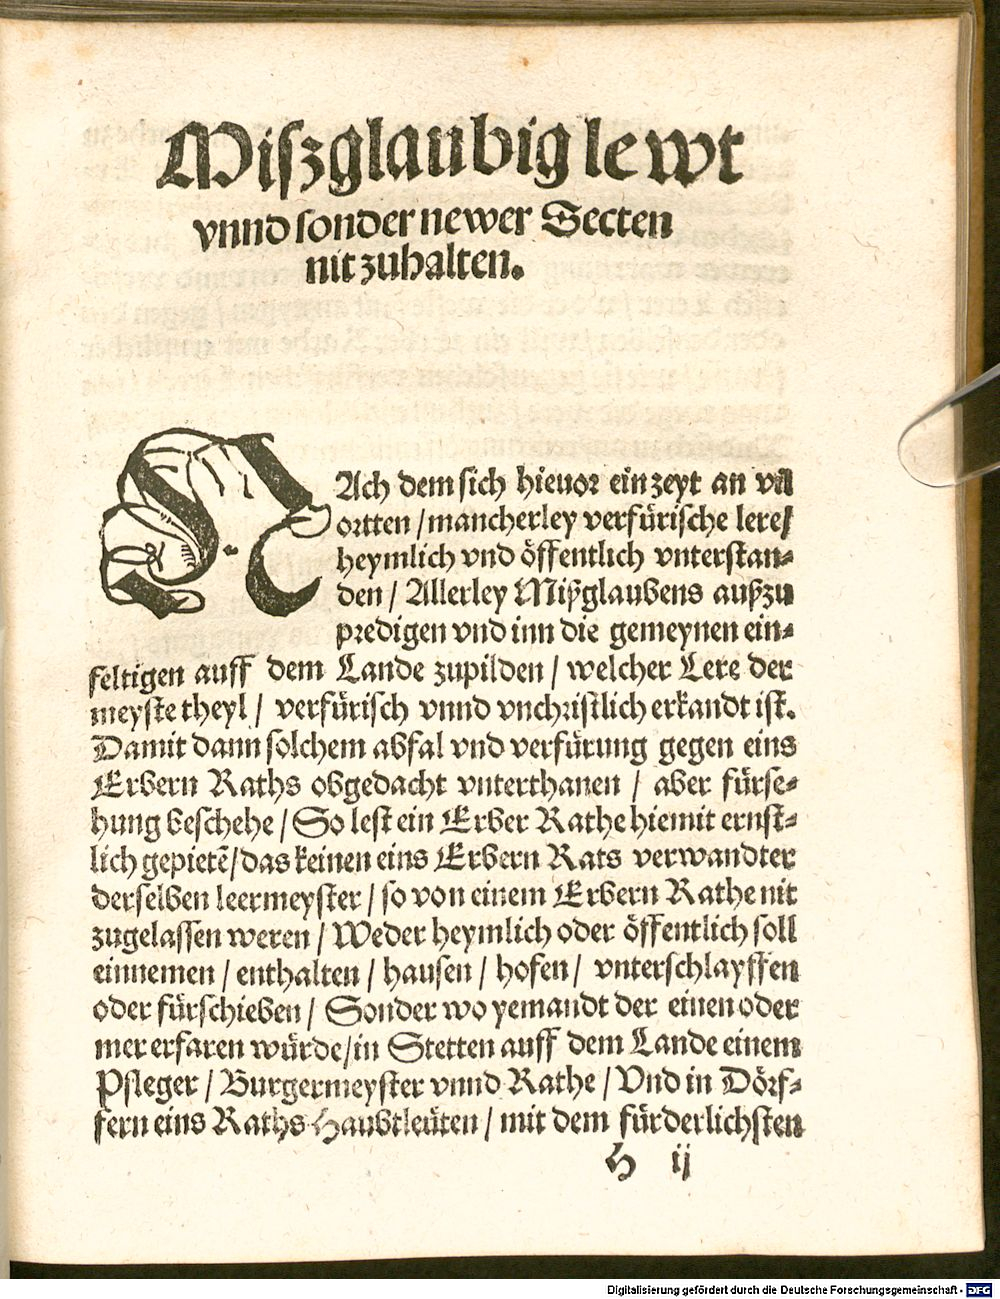 Miſzglaubig lewt
vnnd ſonder newer Secten
nit zuhalten.
NAch dem ſich hieuor ein zeyt an vil
ortten / mancherley verfüriſche lere /
heymlich vnd öffentlich vnterſtan⸗
den / Allerley Mißglaubens außzu
predigen vnd inn die gemeynen ein⸗
feltigen auff dem Lande zupilden / welcher Lere der
meyſte theyl / verfüriſch vnnd vnchriſtlich erkandt iſt.
Damit dann ſolchem abfal vnd verfürung gegen eins
Erbern Raths obgedacht vnterthanen / aber fürſe⸗
hung beſchehe / So leſt ein Erber Rathe hiemit ernſt⸗
lich gepietē / das keinen eins Erbern Rats verwandter
derſelben leermeyſter / ſo von einem Erbern Rathe nit
zugelaſſen weren / Weder heymlich oder öffentlich ſoll
einnemen / enthalten / hauſen / hofen / vnterſchlayffen
oder fürſchieben / Sonder wo yemandt der einen oder
mer erfaren würde / in Stetten auff dem Lande einem
Pfleger / Burgermeyſter vnnd Rathe / Vnd in Dörf⸗
fern eins Raths Haubtleüten / mit dem fürderlichſten
H ij
Digitalisierung gefördert durch die Deutsche Forschungsgemeinschaft - DFG